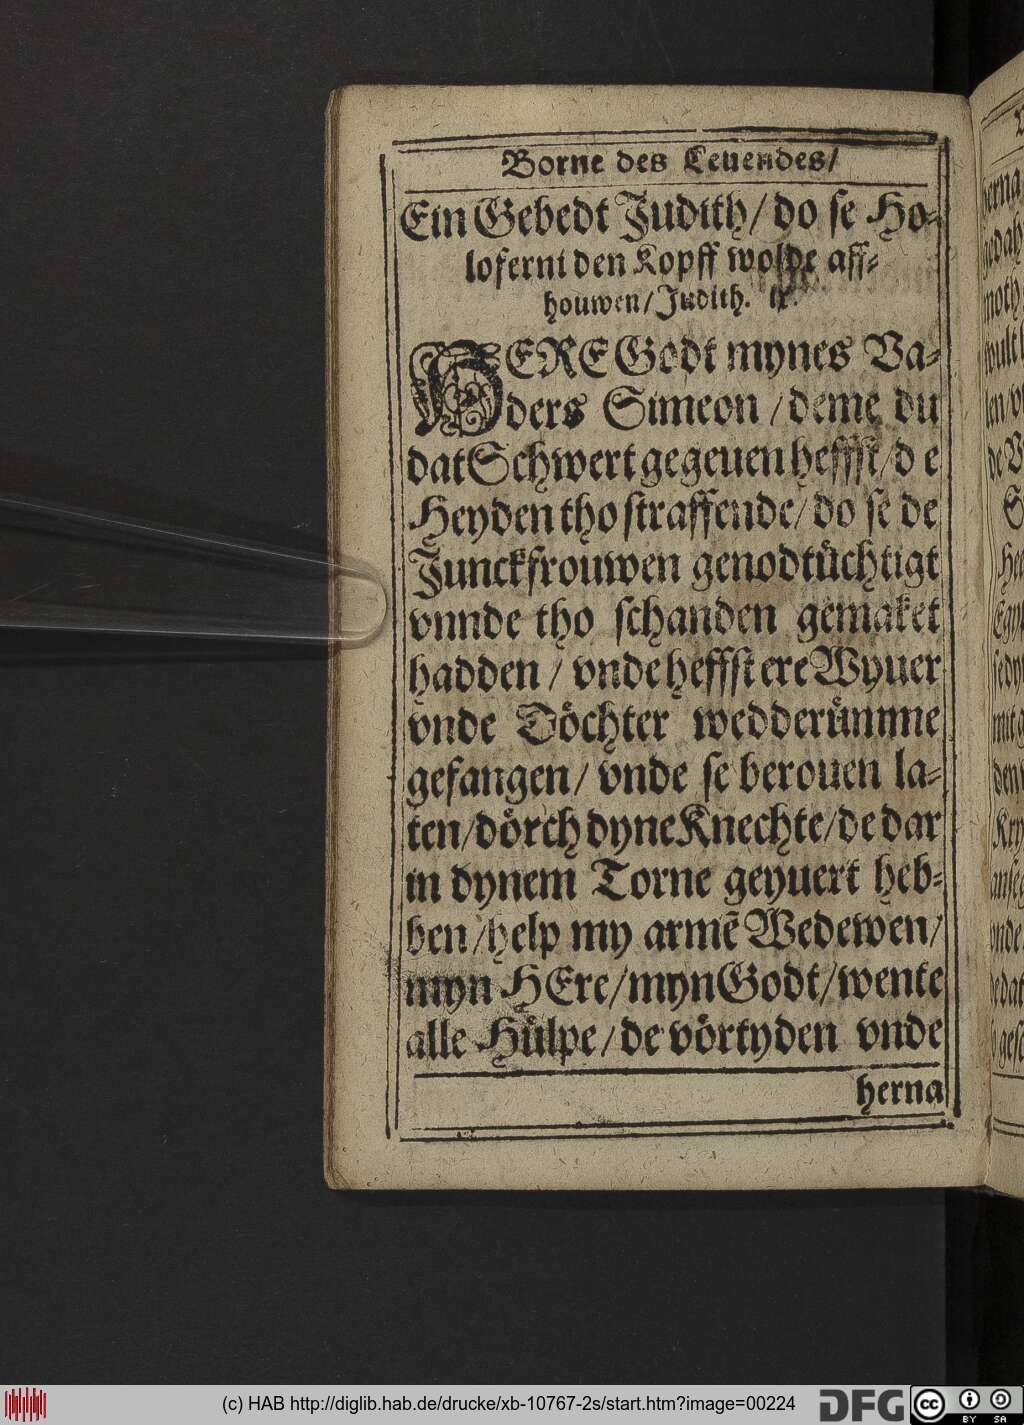 Borne des Leuendes/
Ein Gebedt Judith/ do se Ho-
loferni den Kopff wolde aff-
houwen/ Judith. ix.
HERE Godt mynes Va-
ders Simeon / deme du
dat Schwert gegeuen heffst/ de
Heyden tho straffende/ do se de
Junckfrouwen genodtüchtigt
vnnde tho schanden gemaket
hadden / vnde heffst ere Wyuer
vnde Döchter wedderümme
gefangen/ vnde se berouen la-
ten/ dörch dyne Knechte/ de dar
in dynem Torne geyuert heb-
ben/ help my armē Wedewen/
myn HEre/ myn Godt/ wente
alle Hülpe/ de vörtyden vnde
herna
(c) HAB http://diglib.hab.de/drucke/xb-10767-2s/start.htm?image=00224
DFG
cc
BY SA